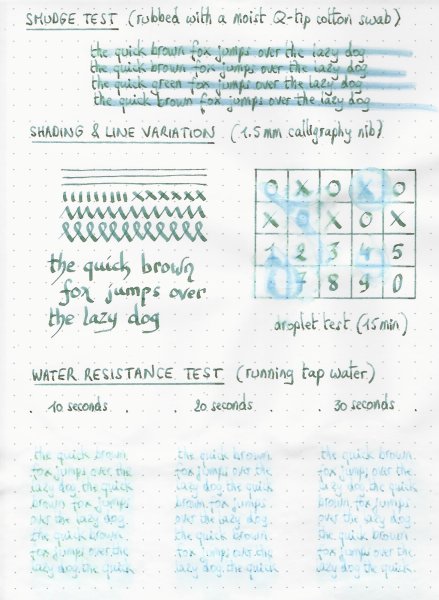 SMUDGE TEST (rubbed with a moist Q-tip cotton swab)
the quick brown fox jumps over the lazy dog
the quick brown fox jumps over the lazy dog
the quick green fox jumps over the lazy dog
the quick brown fox jumps over the lazy dog
SHADING & LINE VARIATION (1.5mm calligraphy nib)
the quick brown
fox jumps over
the lazy dog
O X O X O
X O X O X
1 2 3 4 5
7 8 9 0
droplet test (15min)
WATER RESISTANCE TEST (running tap water)
10 seconds 20 seconds 30 seconds
the quick brown the quick brown the quick brown
fox jumps over the fox jumps over the fox jumps over the
lazy dog. the quick lazy dog. the quick lazy dog. the quick
brown fox jumps brown fox jumps brown fox jumps
over the lazy dog over the lazy dog over the lazy dog
the quick brown the quick brown the quick brown
fox jumps over the fox jumps over the fox jumps over the
lazy dog. the quick lazy dog. the quick lazy dog. the quick